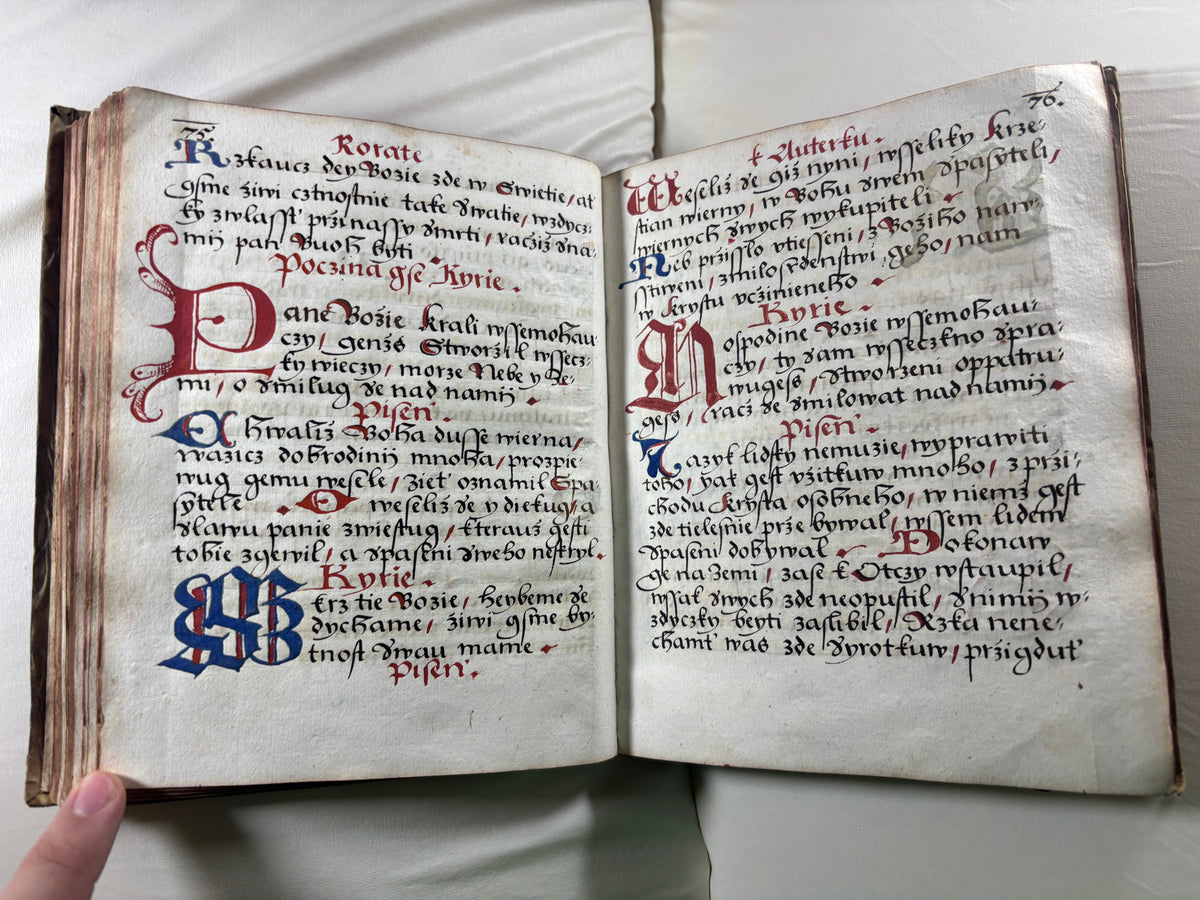 75.
Rorate
Rzkaucz dey Bozie zde w Swietie/ at
gsme ziwi cztnostnie take swatie/ wzdycz:
ky zwlasst przi nassy smrti/ racziz s na-
mij pan Buoh byti
Poczina gse Kyrie.
Pane Bozie krali wssemohau-
czy/ genzs Stworzil wssecz:
ky wieczy/ morze Nebe y Ze-
mi/ o smilug se nad namij.
Pisen.
Chwaliz Boha dusse wierna/
wazicz dobrodinij mnoha/ prozpie-
wug gemu wesele/ ziet oznamil Spa-
sytele. O weseliz se y diekug/ a
slawu panie zwiestug/ kterauz gesti
tobie zgewil/ a spaseni sweho neskryl.
Kyrie.
Skrz tie Bozie/ heybeme se
dychame/ ziwi gsme by-
tnost swau mame.
Pisen.
76.
k Auterku.
Weseliz se giz nyni/ wsseliky krze-
stian wierny/ w Bohu swem spasyteli/
wiernych swych wykupiteli.
Neb przisslo vtiesseni/ z Boziho naw-
sstiweni/ z milosrdenstwi geho/ nam
w krystu vczinieneho.
Kyrie.
Hospodine Bozie wssemohau-
czy/ ty sam wsseczkno spra-
wuges/ stworzeni oppatru-
ges/ racz se smilowat nad namij.
Pisen.
Jazyk lidsky nemuzie/ wyprawiti
toho/ yak gest vzitkuw mnoho/ z przi-
chodu Krysta osobneho/ w niemz gest
zde tielesnie prze bywal/ wssem lidem
spaseni dobywal. Dokonaw
ge na zemi/ zase k Otczy wstaupil/
wssak swych zde neopustil/ s nimij w-
zdyczky beyti zaslibil/ Rzka nene-
chamt was zde syrotkuw/ przigdut